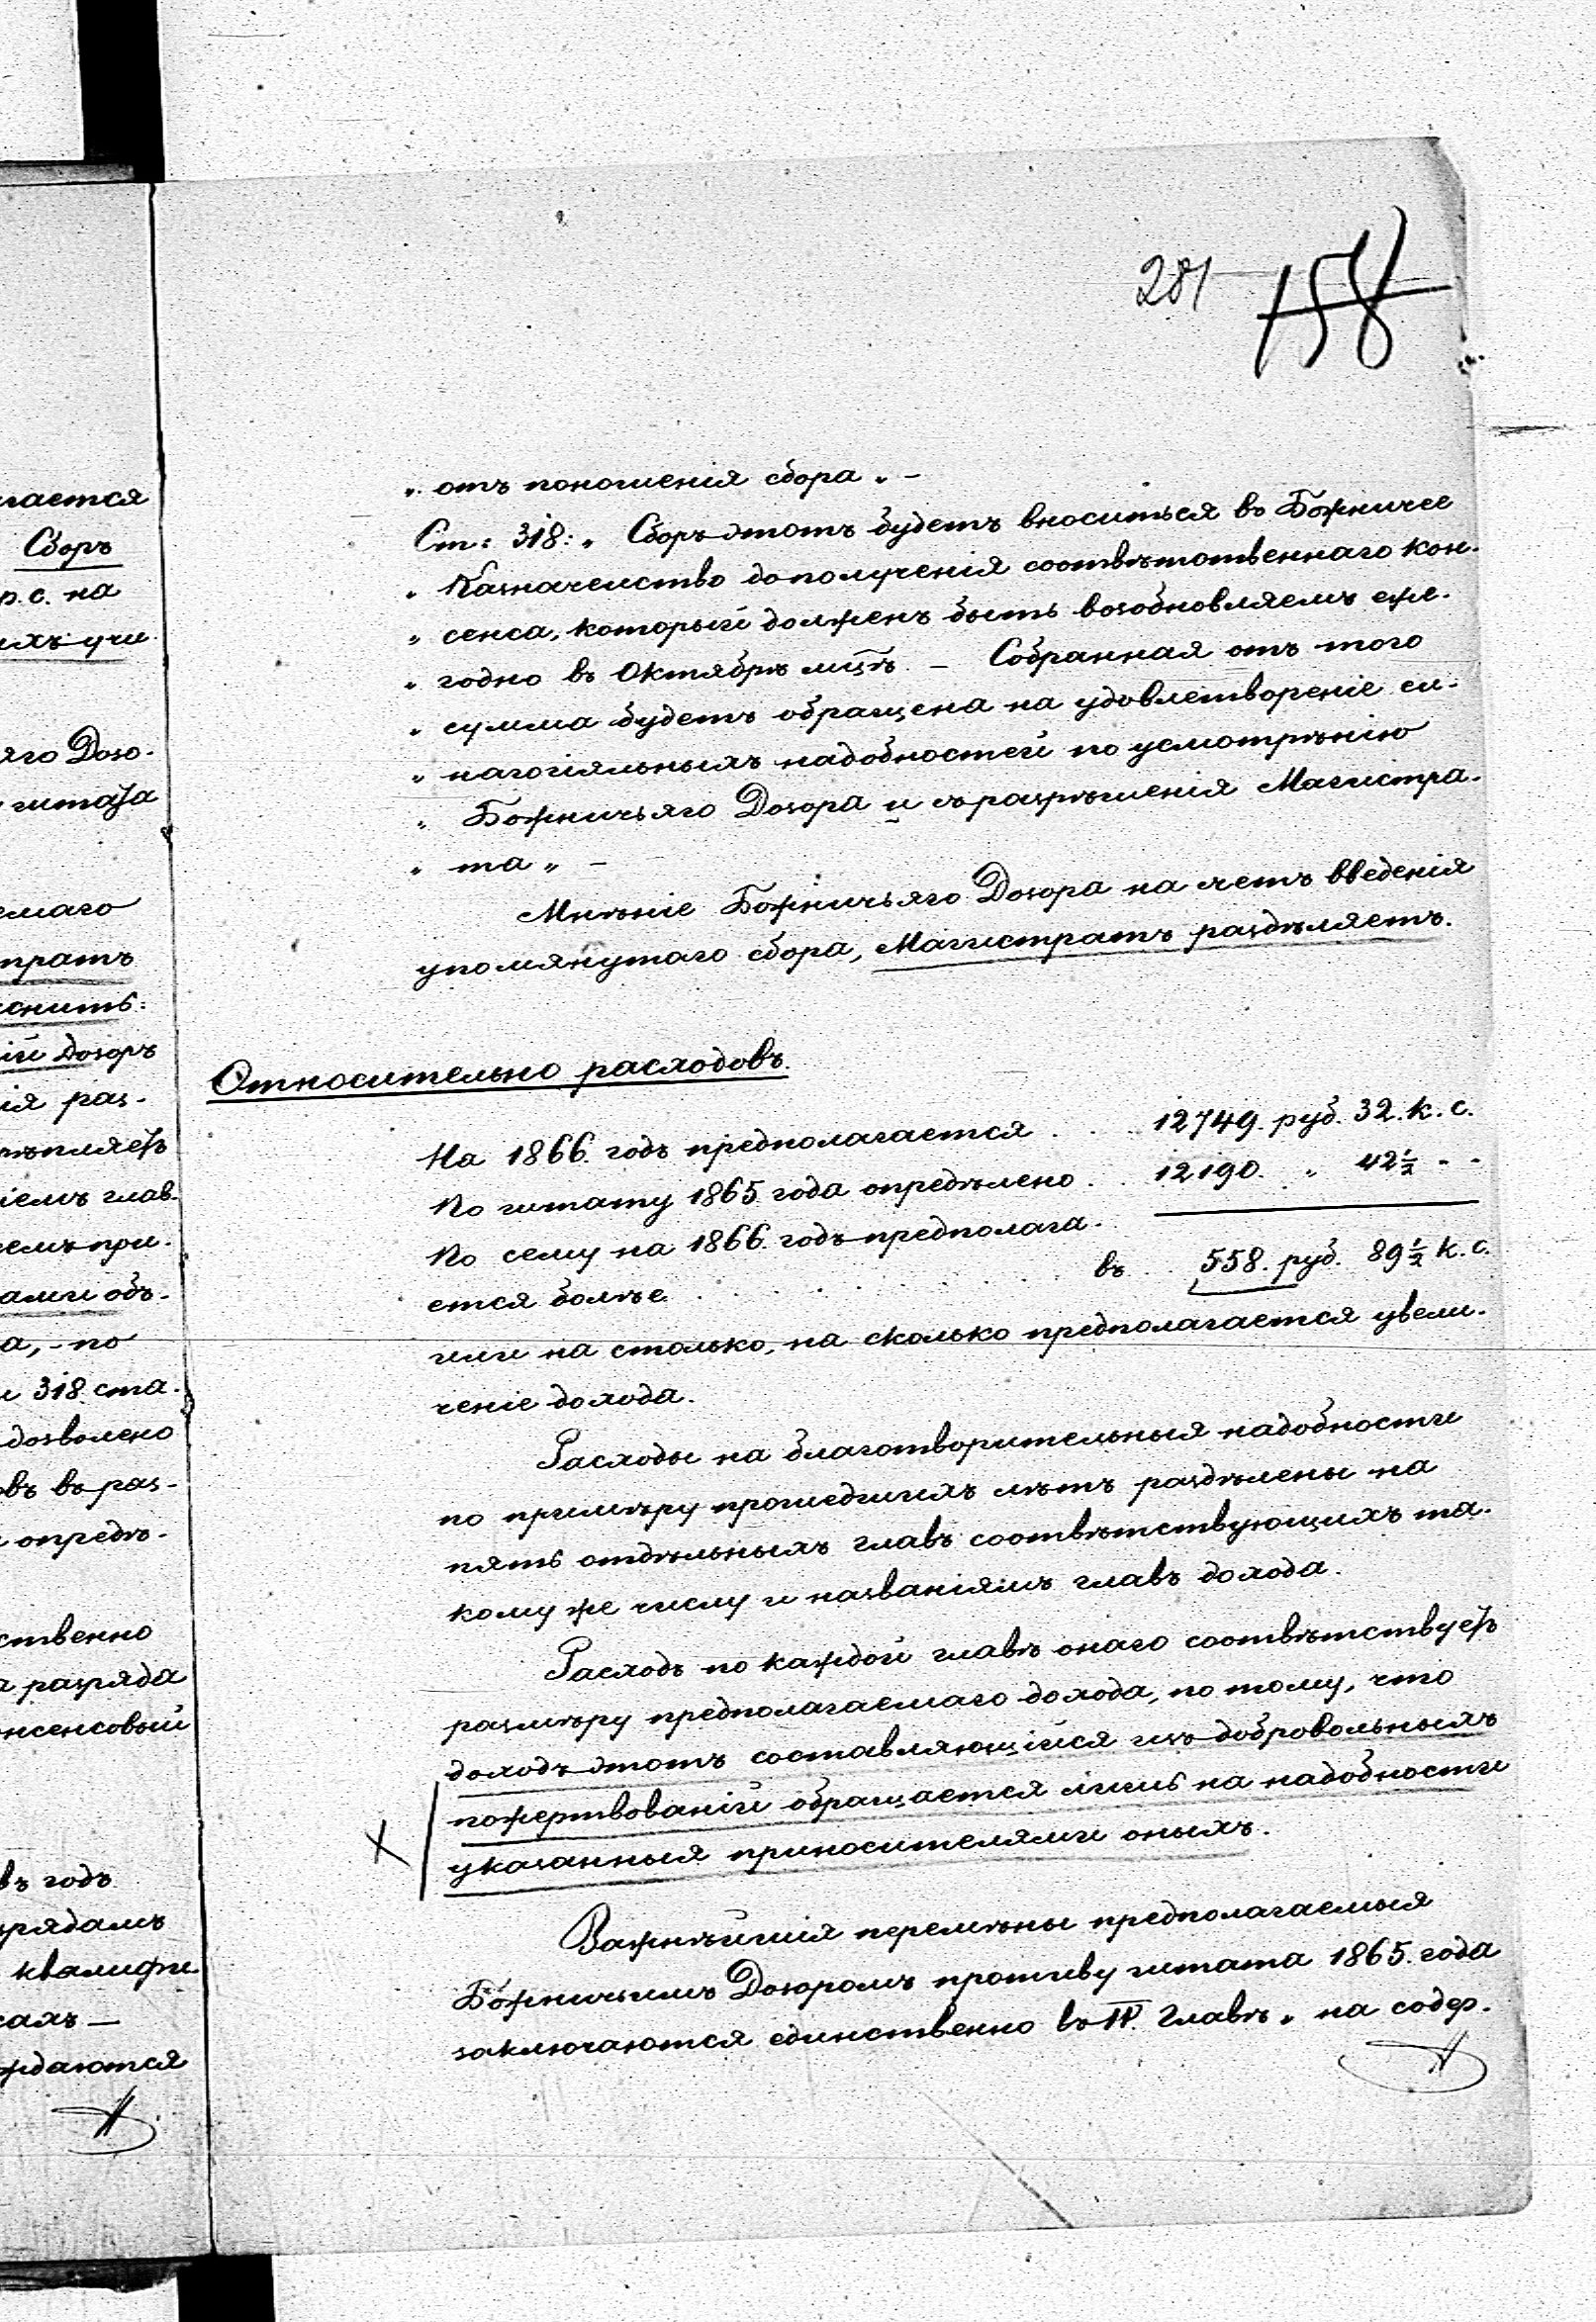 281 158
„ отъ поношенія сбора „ –
Ст: 318: „ Сборъ этотъ будетъ вноситься въ Божничее
„ Казначейство до полученія соотвѣтственнаго кон-
„ сенса, который долженъ быть возобновляемъ еже-
„ годно въ Октябрѣ мцѣ. – Собранная отъ того
„ сумма будетъ обращена на удовлетвореніе си-
„ нагогіяльныхъ надобностей по усмотрѣнію
„ Божничьяго Дозора и съ разрѣшенія Магистра-
„ та „ –
Мнѣніе Божничьяго Дозора на счетъ введенія
упомянутаго сбора, Магистратъ раздѣляетъ.
Относительно расходовъ.
На 1866. годъ предполагается . . . 12749. руб. 32. к. с.
По штату 1865 года опредѣлено . . 12190. „ 42½ - -
По сему на 1866. годъ предполага-
ется болѣе . . . . . . . . . въ . . 558. руб. 89½ к. с.
или на столько, на сколько предполагается увели-
ченіе дохода.
Расходы на благотворительныя надобности
по примѣру прошедшихъ лѣтъ раздѣлены на
пять отдѣльныхъ главъ соотвѣтствующихъ та-
кому же числу и названіямъ главъ дохода.
Расходъ по каждой главѣ онаго соотвѣтствуетъ
размѣру предполагаемаго дохода, по тому, что
доходъ этотъ составляющійся изъ добровольныхъ
пожертвованій обращается лишь на надобности
указанныя приносителями оныхъ.
Важнѣйшія перемѣны предполагаемыя
Божничьимъ Дозоромъ противу штата 1865. года
заключаются единственно въ IV. Главѣ „ на содер-
гается
Сборъ
р. с. на
ихъ учи-
яго Дозо-
штата
емаго
тратъ
снить:
ій Дозоръ
ія раз-
ѣпляетъ
іемъ глав-
емъ при-
ами объ-
а, – по
и 318. ста-
дозволено
овъ въ раз-
опредѣ-
ственно
а разряда
нсенсовый
въ годъ
рядамъ
квалифи-
сахъ –
ждаются